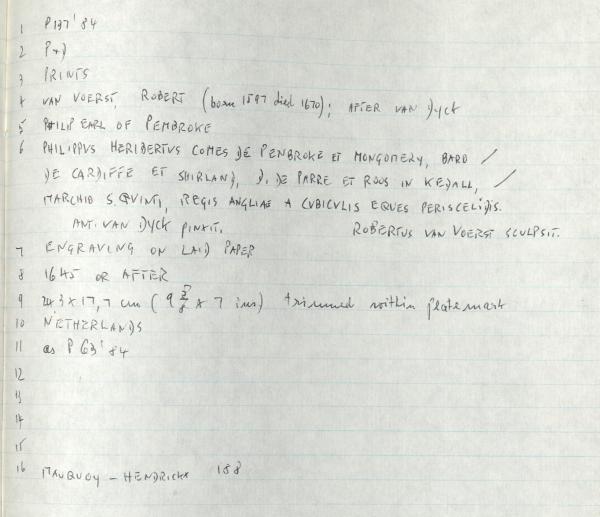 1 P137'84
2 P+D
3 PRINTS
4 VAN VOERST, ROBERT (born 1597 died 1670); AFTER VAN DYCK
5 PHILIP EARL OF PEMBROKE
6 PHILIPPVS HERIBERTVS COMES DE PENBROKE ET MONGOMERY, BARO /
DE CARDIFFE ET SHIRLAND, D. DE PARRE ET ROOS IN KEDALL, /
MARCHIO S. QVINTI, REGIS ANGLIAE A CVBICVLIS EQUES PERISCELIDIS.
ANT. VAN DYCK PINXIT. ROBERTUS VAN VOERST SCULPSIT.
7 ENGRAVING ON LAID PAPER
8 1645 OR AFTER
9 24.3 x 17,7 cm (9 5/8 x 7 ins) trimmed within platemark
10 NETHERLANDS
11 as P 63'84
12
13
14
15
16 MAUQUOY - HENDRICKX 188